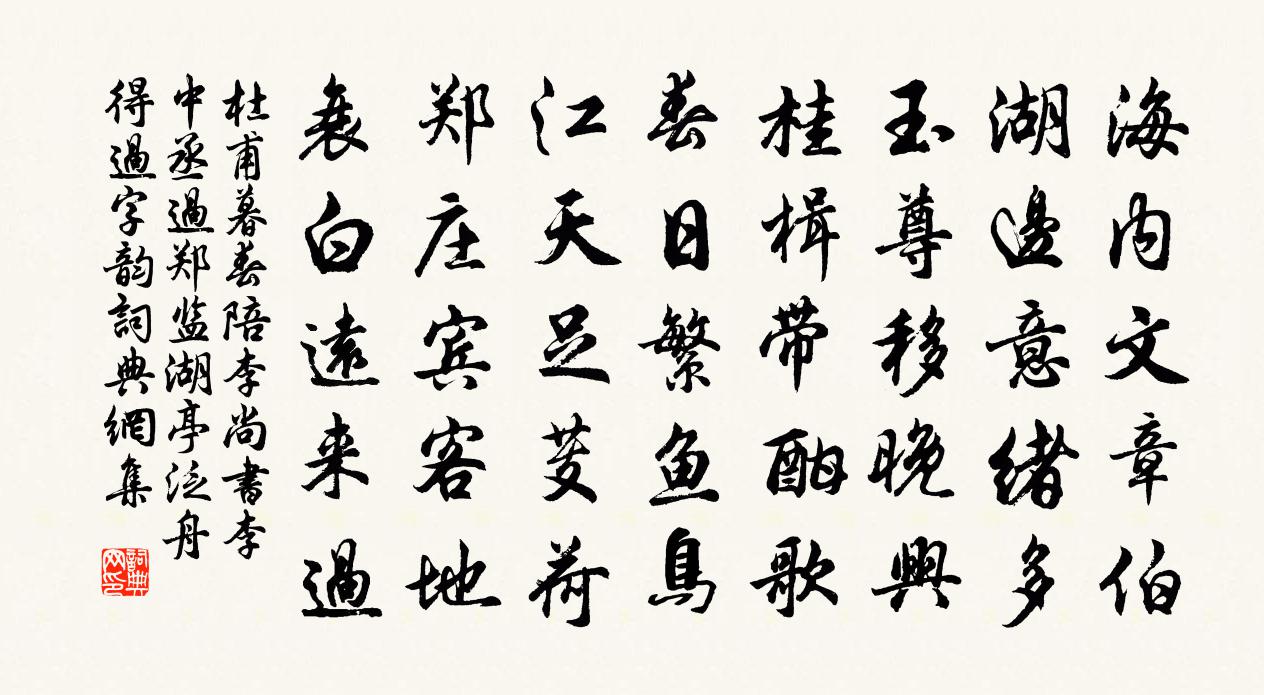 海内文章伯
湖邊意緒多
玉尊移晚興
桂楫带酣歌
春日繁鱼鳥
江天足芰荷
郑庄宾客地
衰白遠来過
杜甫暮春陪李尚書李
中丞過郑监湖亭泛舟
得過字韵詞典網集
詞典网印